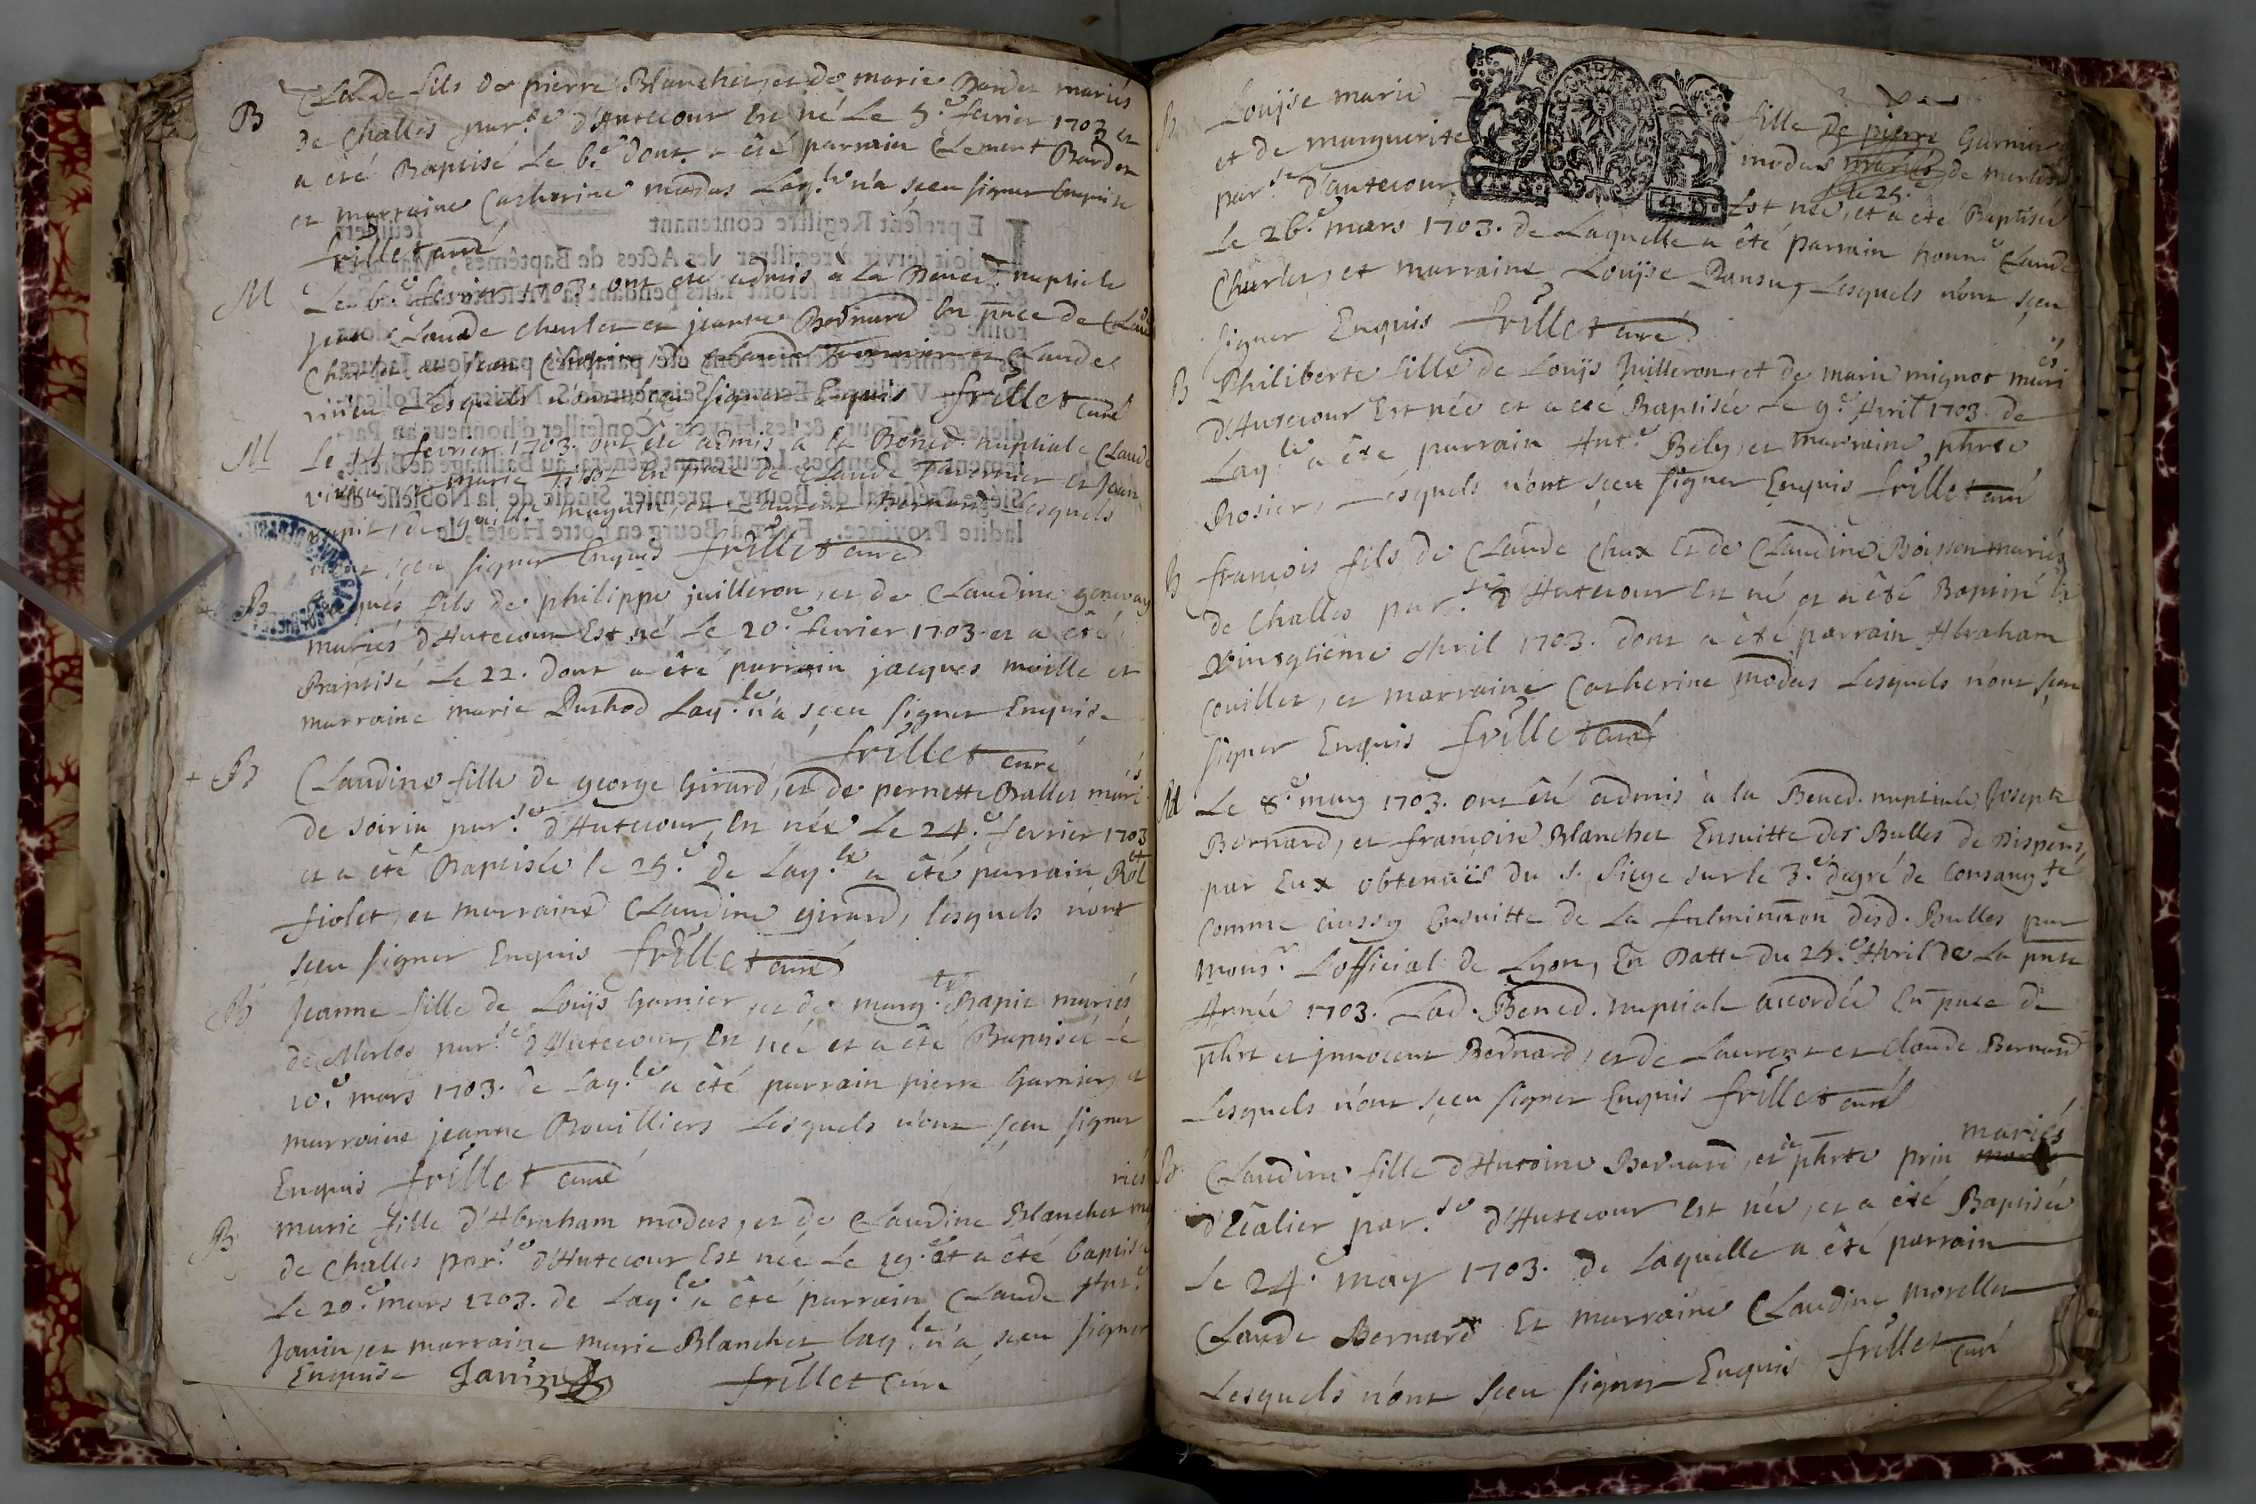 B Claude fils de pierre Blanchet, et de marie Bardet mariés
de Challes par.se d'Autecour est né Le 5.e fevrier 1703 et
a été Baptisé Le 6.e dont a été parrain Clement Bardet
et marraine Catherine modas Laq.le n'a sçeu signer Enquise
frillet curé
M Le 6.e fevrier 1703. ont été admis a La Bened. nuptiale
jean Claude charlet et jeanne Bernard En pnce de Claude
Charlet et jean Claude
vivieu Lesquels n'ont sçeu signer Enquis frillet curé
M Le 14 fevrier 1703. ont été admis a la Bened. nuptiale Claude
vivieu et marie Tissot En pnce de Claude et jean
et Laurent Bernard Lesquels
n'ont sçeu signer Enquis frillet curé
B jacques fils de philippe juilleron, et de Claudine genevay
mariés d'Autecour Est né Le 20.e fevrier 1703. et a été
Baptisé Le 22. dont a été parrain jacques moille et
marraine marie Puthod Laq.le n'a sçeu signer Enquise
frillet curé
+ B Claudine fille de george Girard, et de pernette Ballet mariés
de soiria par.se d'Autecour, est née Le 24.e fevrier 1703
et a été Baptisée le 25.e de Laq.le a été parrain
fiolet, et marraine Claudine girard, lesquels n'ont
sçeu signer Enquis frillet curé
B Jeanne fille de Louis Garnier, et de marg.te Bapie mariés
de Merlos par.se d'Autecour, est née et a été Baptisée Le
10.e mars 1703. de Laq.le a été parrain pierre Garnier, et
marraine jeanne Bouilliers Lesquels n'ont sçeu signer
Enquis frillet curé
B marie fille d'Abraham modas, et de Claudine Blanchet mariés
de Challes par.se d'Autecour Est née Le 19.e et a été baptisée
Le 20.e mars 1703. de Laq.le a été parrain Claude Ant.e
Janin, et marraine marie Blanchet laq.le n'a sçeu signer
Enquise Janin frillet curé
B Louise marie fille de pierre Garnier
et de marguerite modas mariés de merlos
par.se d'autecour le 25. Est née, et a été Baptisée
Le 26.e mars 1703. de Laquelle a été parrain honn.e Claude
Charlet, et marraine Louise Pansuy Lesquels n'ont sçeu
signer Enquis frillet curé
B Philiberte fille de Louis Juilleron, et de marie mignot mariés
d'Autecour Est née et a été Baptisée Le 9.e Avril 1703. de
Laq.le a été parrain Ant.e Bely, et marraine phrte
Rosier, Lesquels n'ont sçeu signer Enquis frillet curé
B françois fils de Claude Chax et de Claudine Boisson mariés
de Challes par.se d'Autecour est né et a été Baptisé le
vingtième Avril 1703. dont a été parrain Abraham
Couillet, et marraine Catherine modas Lesquels n'ont sçeu
signer Enquis frillet curé
M Le 8.e may 1703. ont été admis à la Bened. nuptiale Joseph
Bernard, et françoise Blanchet Ensuitte des Bulles de Dispense,
par Eux obtenües du S. Siege sur le 3.e degré de Consang.té
comme aussy Ensuitte de La fulmination desd. Bulles par
mons.r L'official de Lyon, En Datte du 25.e Avril de La pnte
Année 1703. Lad. Bened. nuptiale accordée En pnce de
phrt et jnnocent Bernard, et de Laurent et claude Bernard
Lesquels n'ont sçeu signer Enquis frillet curé
B Claudine fille d'Antoine Bernard, et de phrte prin mariés
d'Ecalier par.se d'Autecour est née, et a été Baptisée
Le 24.e may 1703. de Laquelle a été parrain
Claude Bernard Et marraine Claudine morellet
Lesquels n'ont sçeu signer Enquis frillet curé